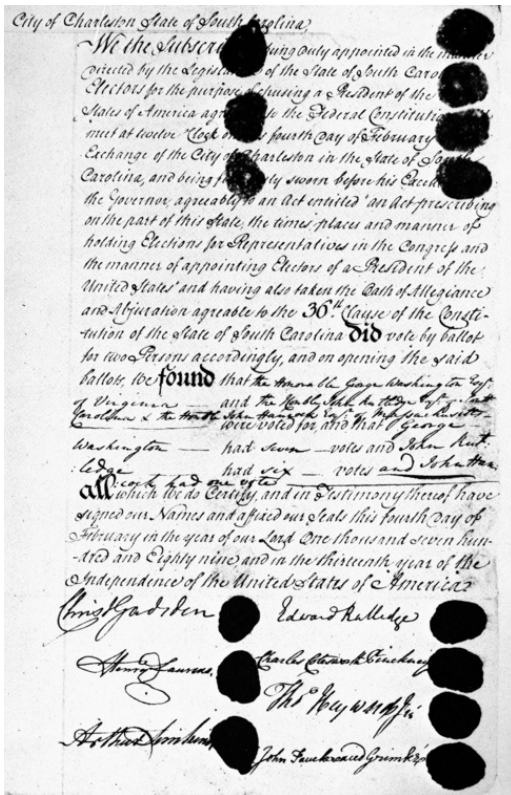 City of Charleston State of South Carolina,
We the Subscri being duly appointed in the manner
directed by the Legisla of the State of South Carol
Electors for the purpose of chusing a President of the
States of America agr to the Federal Constitution
meet at twelve Clock on fourth Day of February
Exchange of the City of Charleston in the State of South
Carolina, and being f ly sworn before his Excel
the Governor, agreeably to an Act entitled "an Act prescribing
on the part of this State, the times, places and manner of
holding Elections for Representatives in the Congress and
the manner of appointing Electors of a President of the
United States" and having also taken the Oath of Allegiance
and Abjuration agreable to the 36th. Clause of the Consti-
tution of the State of South Carolina did vote by ballot
for two Persons accordingly, and on opening the said
ballots, We found that the Honorable George Washington Esqr.
of Virginia — and the Honble John Rutledge Esqr. of South
Carolina & the Honble John Hancock Esqr. of Massachusetts
were voted for, and that George —
Washington — had seven — votes and John Rut
:ledge had six — votes and John Han
:cock had one vote
all which We do Certify, and in Testimony thereof have
signed our Names and affixed our Seals this fourth Day of
February in the year of our Lord One thousand seven hun-
dred and Eighty nine, and in the thirteenth year of the
Independence of the United States of America.
Christ Gadsden Edward Rutledge
Henry Laurens. Charles Cotesworth Pinckney
Thos Heyward Jr
Arthur Simkins John Faucheraud Grimké